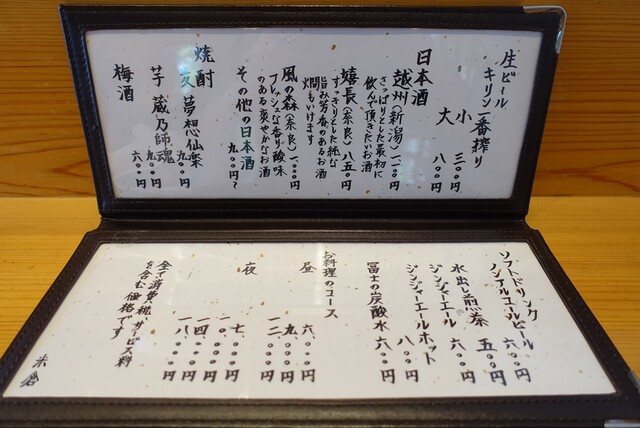 生ビール
キリン一番搾り
小 三〇〇円
大 八〇〇円
日本酒
越州(新潟)一、一〇〇円
さっぱりとした最初に
飲んで頂きたいお酒
嬉長(奈良)八五〇円
すっきりとした純な
旨み芳香のあるお酒
燗もいけます
風の森(奈良)一、〇〇〇円
フレッシュな香り酸味
のある爽やかなお酒
その他の日本酒
九〇〇円〜
焼酎
麦 夢想仙楽
九〇〇円
芋 蔵乃師魂
九〇〇円
梅酒
六〇〇円
ソフトドリンク
ノンアルコールビール
六〇〇円
五〇〇円
水出し煎茶
六〇〇円
ジンジャーエール
ジンジャーエールホット
八〇〇円
冨士の炭酸水 六〇〇円
お料理のコース
昼
六、〇〇〇円
九、〇〇〇円
一二、〇〇〇円
夜
七、〇〇〇円
一〇、〇〇〇円
一四、〇〇〇円
一八、〇〇〇円
全て消費税、サービス料
を含む価格です
米倉